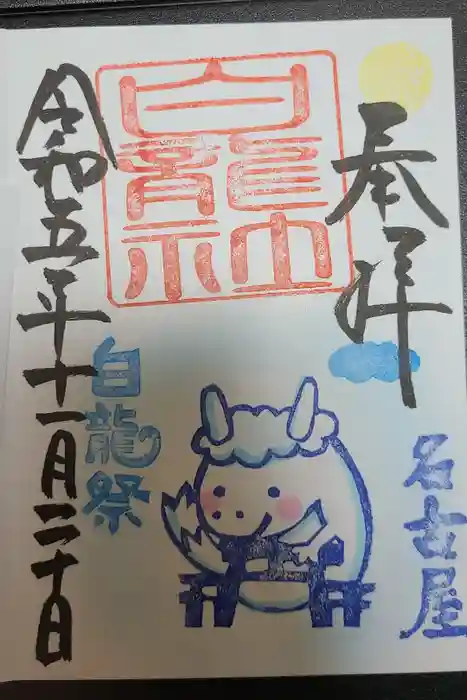 奉拝
名古屋
白龍神社
白龍祭
令和五年十一月二十日